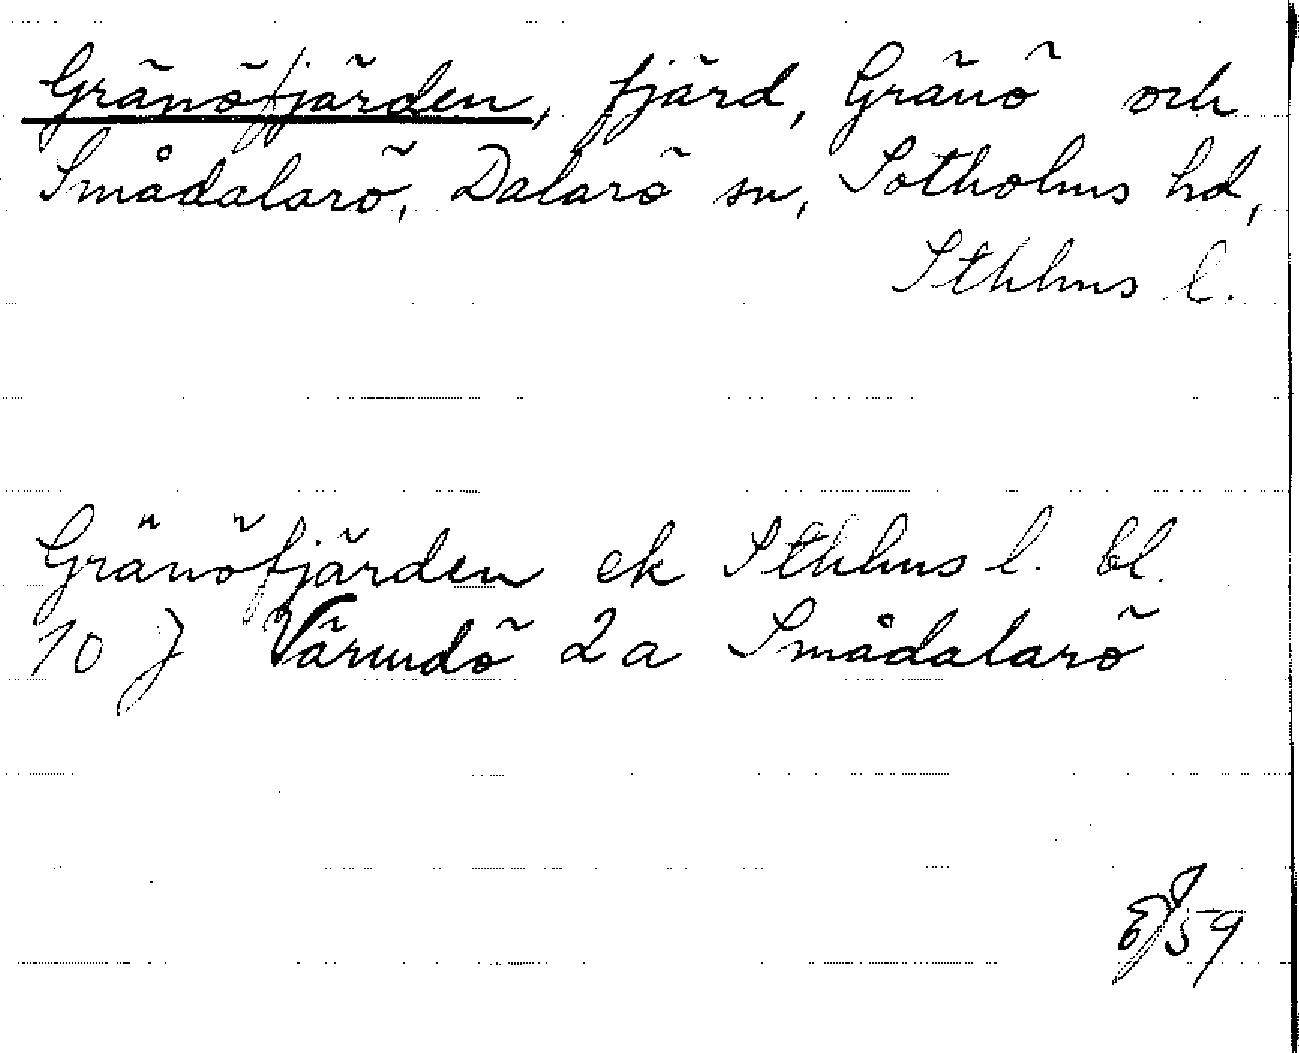 Gränöfjärden, fjärd, Gränö och
Smådalarö, Dalarö sn, Sotholms hd,
Sthlms l.
Gränöfjärden ek Sthlms l. bl.
10 J Värmdö 2a Smådalarö